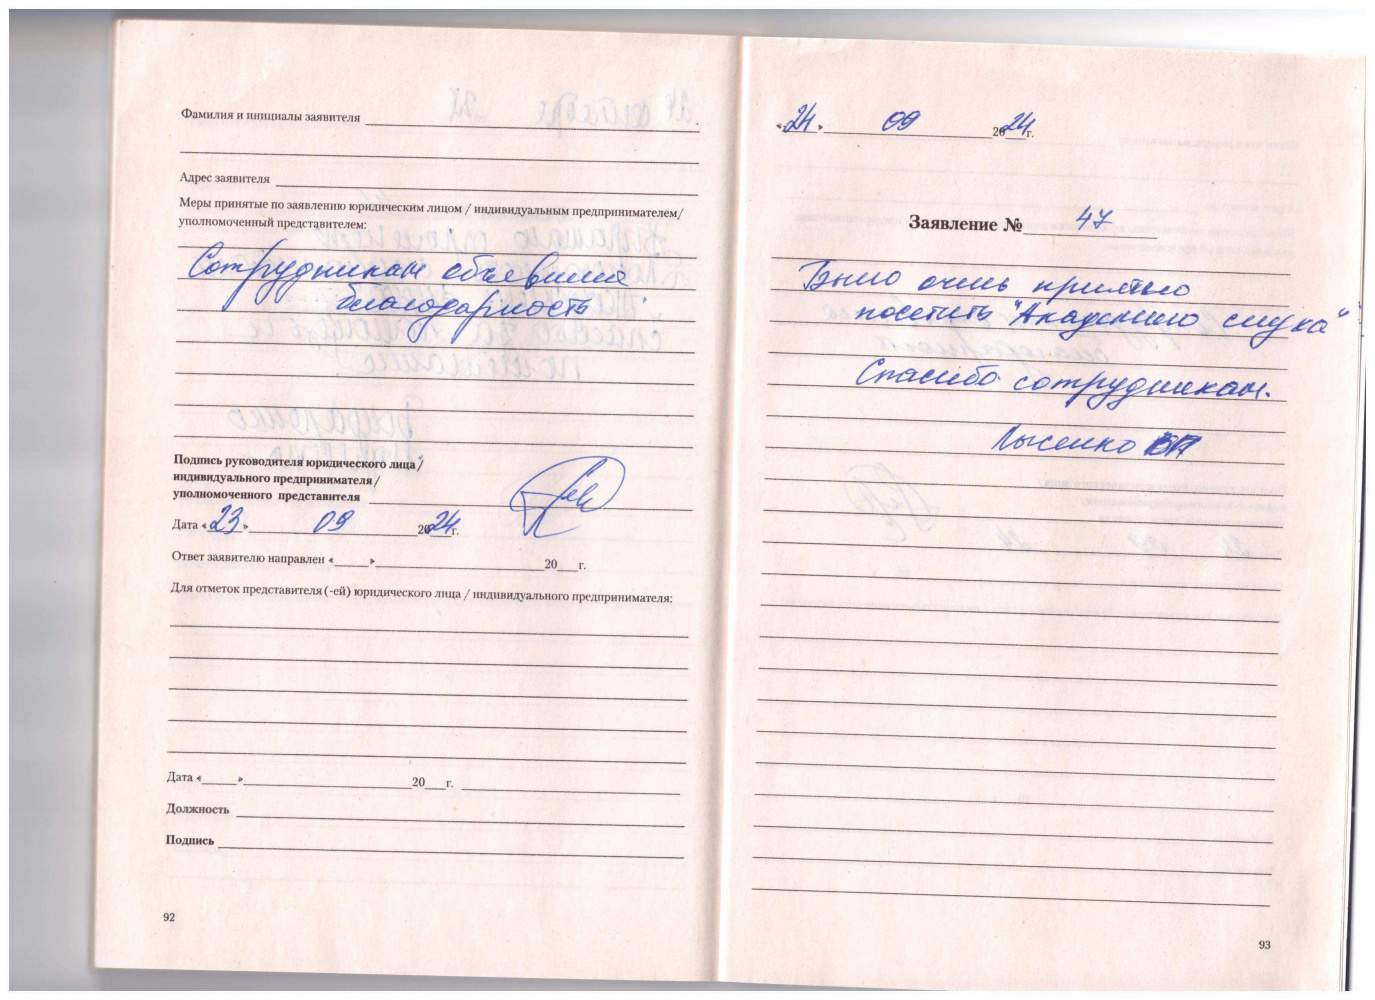 Фамилия и инициалы заявителя
Адрес заявителя
Меры принятые по заявлению юридическим лицом / индивидуальным предпринимателем/
уполномоченный представителем:
Сотрудникам объявлена
благодарность
Подпись руководителя юридического лица /
индивидуального предпринимателя /
уполномоченного представителя
Дата «23» 09 2024г.
Ответ заявителю направлен «____»____20___г.
Для отметок представителя (-ей) юридического лица / индивидуального предпринимателя:
Дата «____»____20___г.
Должность
Подпись
92
«24» 09 2024г.
Заявление № 47
Было очень приятно
посетить "Академию слуха"
Спасибо сотрудникам.
Лысенко
93